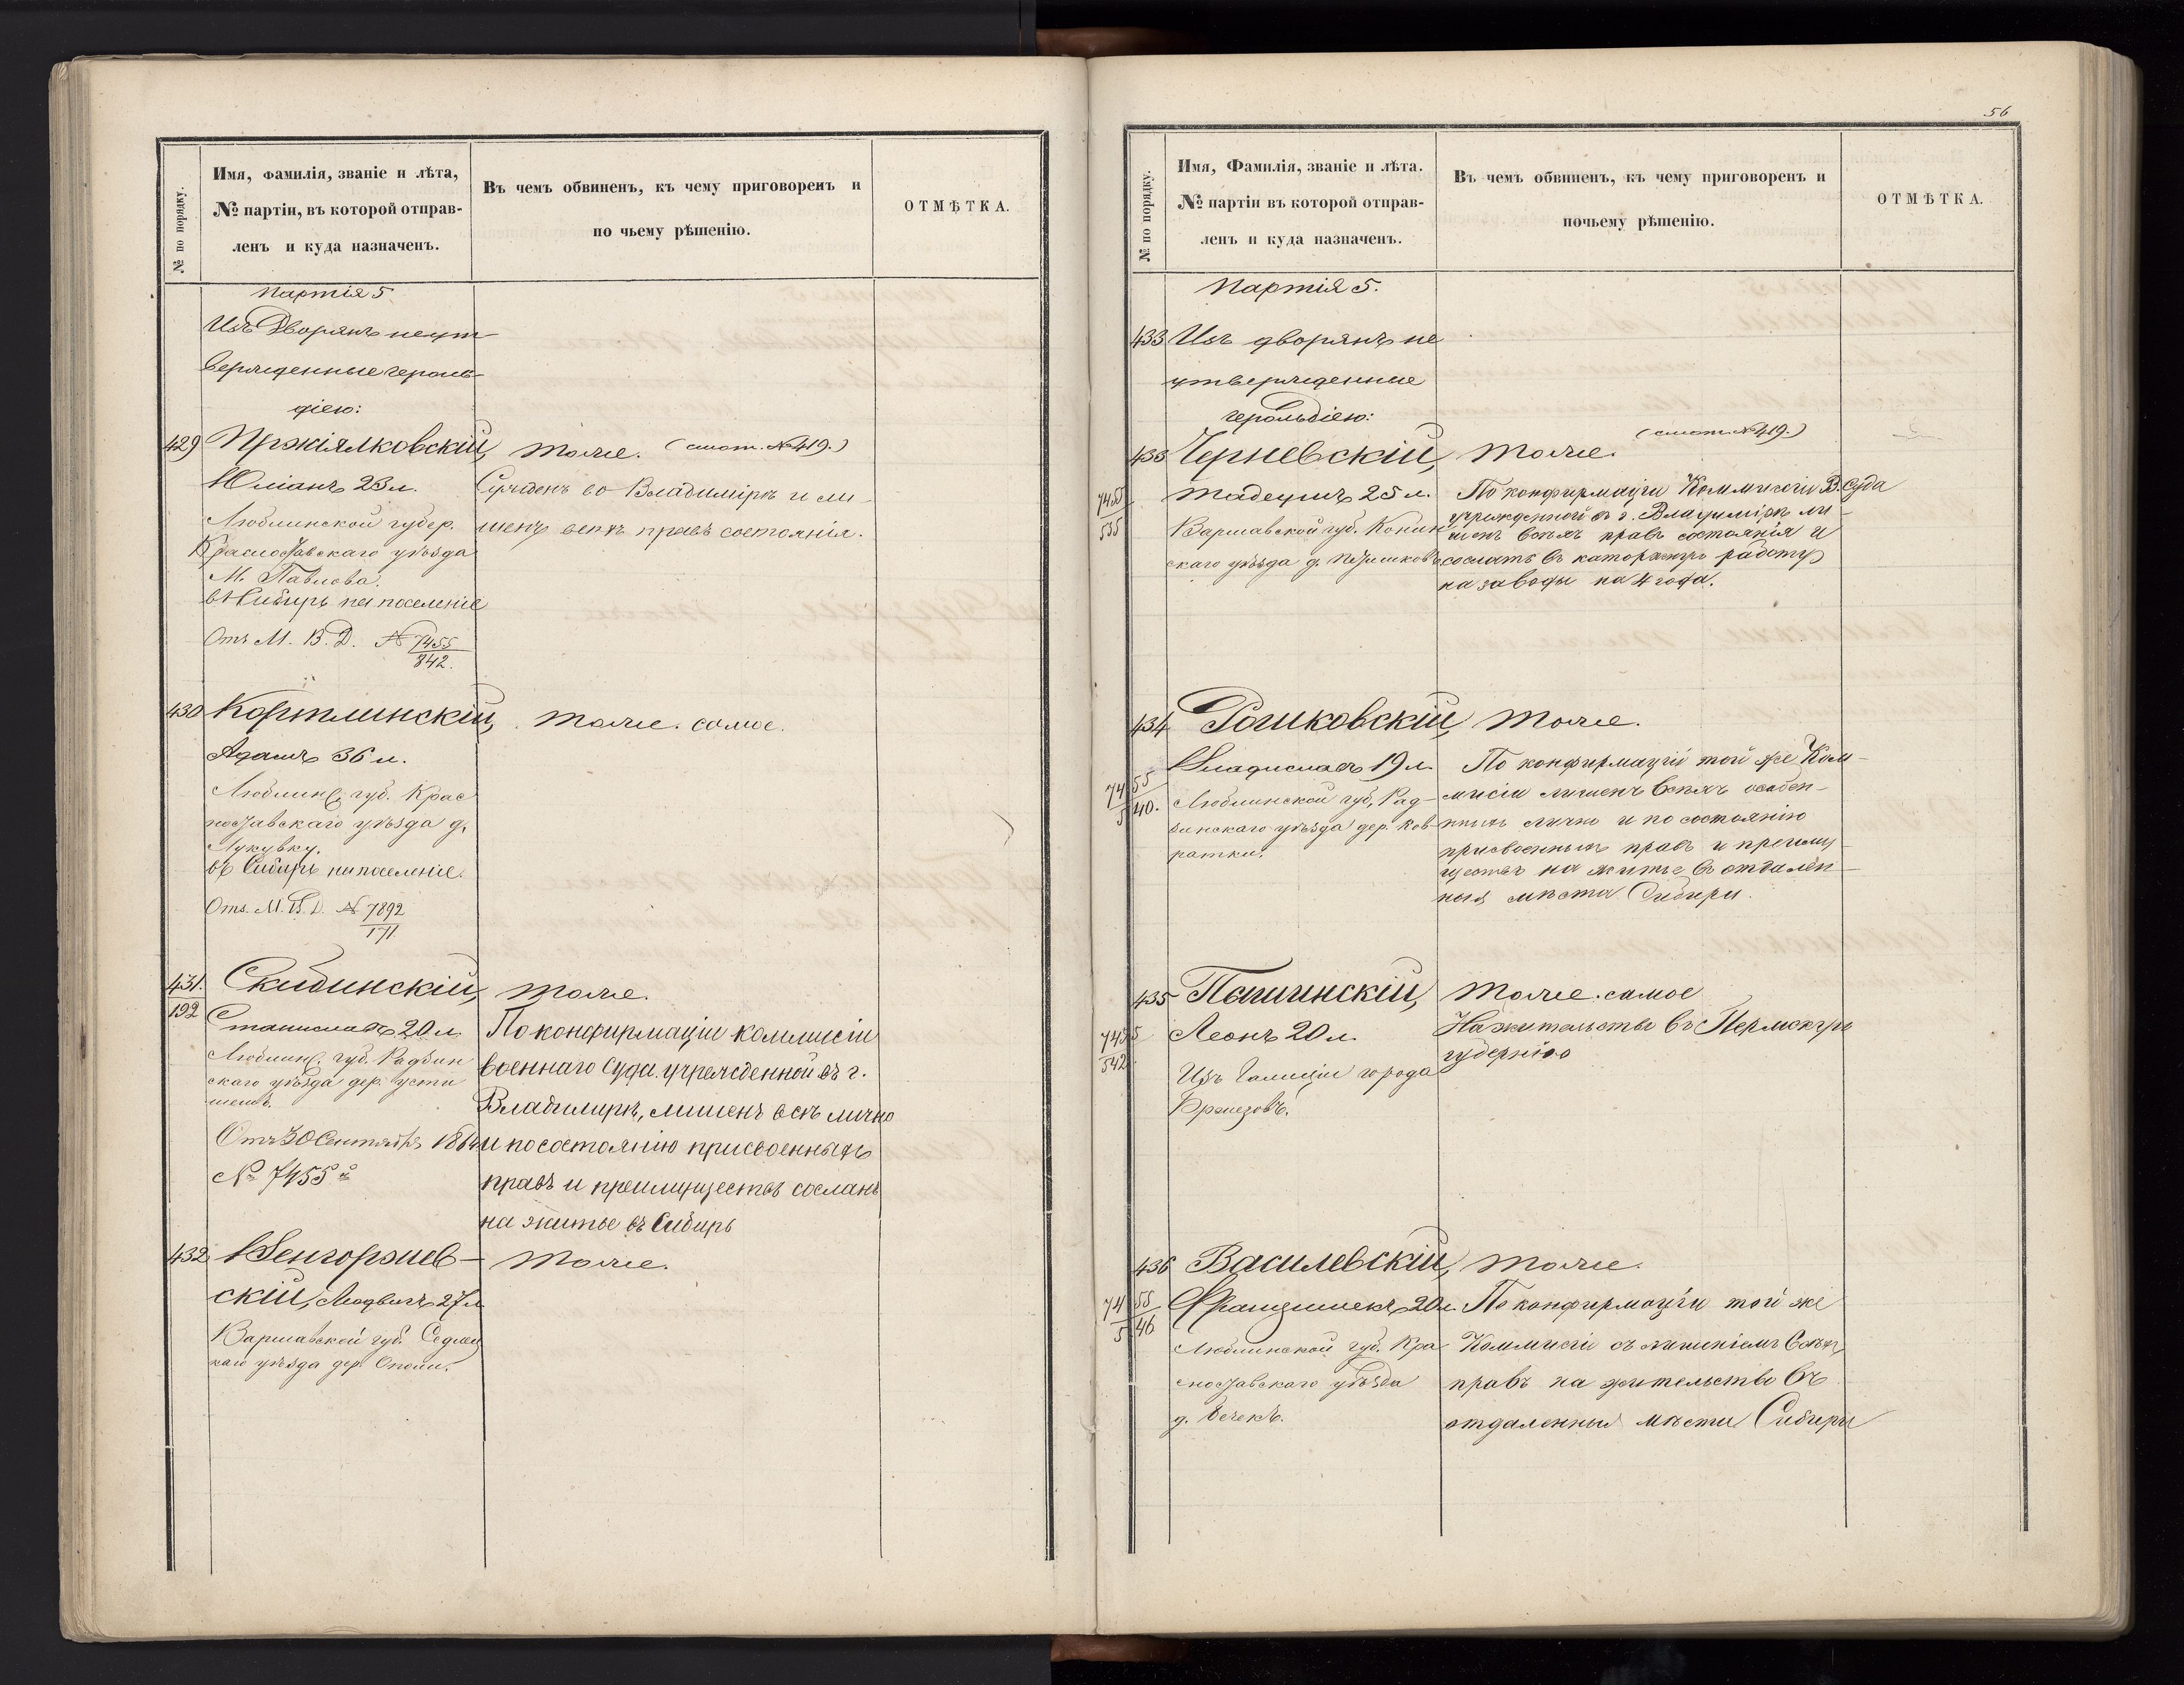 № по порядку.
Имя, фамилія, званіе и лѣта,
№ партіи, въ которой отправ-
ленъ и куда назначенъ.
Въ чемъ обвиненъ, къ чему приговоренъ и
по чьему рѣшенію.
ОТМѢТКА.
Партія 5
Изъ Дворянъ неут
вержденные героль-
діею:
429 Пржіялковскій, тоже. (смот. №419.)
Юліанъ 23 л. Сужденъ во Владимірѣ и ли-
Люблинской губер. шенъ всѣхъ правъ состоянія.
Красноставскаго уѣзда
М. Павлова.
въ Сибирь на поселеніе
Отъ М. В. Д. № 7455
842.
430 тоже. самое.
Адамъ 36 л.
Люблин. губ. Крас
ноставскаго уѣзда д.
въ Сибирь на поселеніе.
Отъ. М. В. Д. № 7892
171
431. Скибинскій, тоже.
192
Станиславъ 20 л. По конфирмаціи коммисіи
Люблин. губ. Радзин военнаго суда учрежденной въ г.
скаго уѣзда дер. Усти
Владимирѣ, лишенъ всѣхъ лично
Отъ 30 Сентября 1864 и по состоянію присвоенныхъ
№ 7455 правъ и преимуществъ сосланъ
на житье въ Сибирь
432 Венгоржев- тоже.
скій, Людвигъ 27 л
Варшавской губ. Седлец
каго уѣзда дер.
56
№ по порядку.
Имя, Фамилія, званіе и лѣта.
№ партіи въ которой отправ-
ленъ и куда назначенъ.
Въ чемъ обвиненъ, къ чему приговоренъ и
почьему рѣшенію.
ОТМѢТКА.
Партія 5.
433 Изъ дворянъ не
утвержденные
герольдіею:
(смот. №419.)
433 Черневскій, тоже.
Тадеушъ 25 л. По конфирмаціи Коммисіи В. Суда
7455
535
учрежденной въ г. Владимірѣ ли-
Варшавской губ. Конин шенъ всѣхъ правъ состоянія и
скаго уѣзда д. сослать въ каторжную работу
на заводы на 4 года.
434 Рошковскій, тоже.
Владиславъ 19 л. По конфирмаціи той же Ком-
7455
540.
Люблинской губ, Рад- мисіи лишенъ всѣхъ особен-
зинскаго уѣзда дер. Ков- ныхъ лично и по состоянію
ратки. присвоенныхъ правъ и преиму-
ществъ на житье въ отдален-
ныя мѣста Сибири.
435 тоже. самое
Леонъ 20 л. На жительство въ Пермскую
7455
542
губернію
Изъ Галиціи города
436 Василевскій, тоже.
Францишекъ 20 л. По конфирмаціи той же
7455
546
Люблинской губ. Кра Коммисіи съ лишеніемъ всѣхъ
сноставскаго уѣзда правъ на жительство въ
д. отдаленныя мѣста Сибири